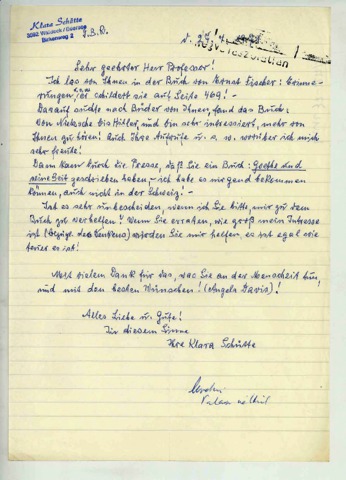 Klara Schütte
Birkenweg 2
d. 27/4.
Sehr geehrter Herr Professor!
Ich las von Ihnen in der Buch von Ernst Fischer: Erinne-
rungen, er schildert sie auf Seite 469! -
Darauf suchte nach Bücher von Ihnen, fand das Buch:
von Nietzsche bis Hitler, und bin sehr interessiert, mehr von
Ihnen zu hören! Auch Ihre Aufrufe u. s. w. worüber ich mich
sehr freute!
Dann kam durch die Presse, daß Sie ein Buch: Goethe und
seine Zeit geschrieben haben, - ich habe es nirgend bekommen
können, auch nicht in der Schweiz! -
Ist es sehr unbescheiden, wenn ich Sie bitte, mir zu dem
Buch zu verhelfen? Wenn Sie ersehen, wie groß mein Interesse
ist, werden Sie mir helfen, es ist egal wie
teuer es ist!
Mit vielem Dank für das, was Sie an der Menschheit tun,
und mit den besten Wünschen! (Angela Davis)!
Alles Liebe u. Gute!
In diesem Sinne
Ihre Klara Schütte